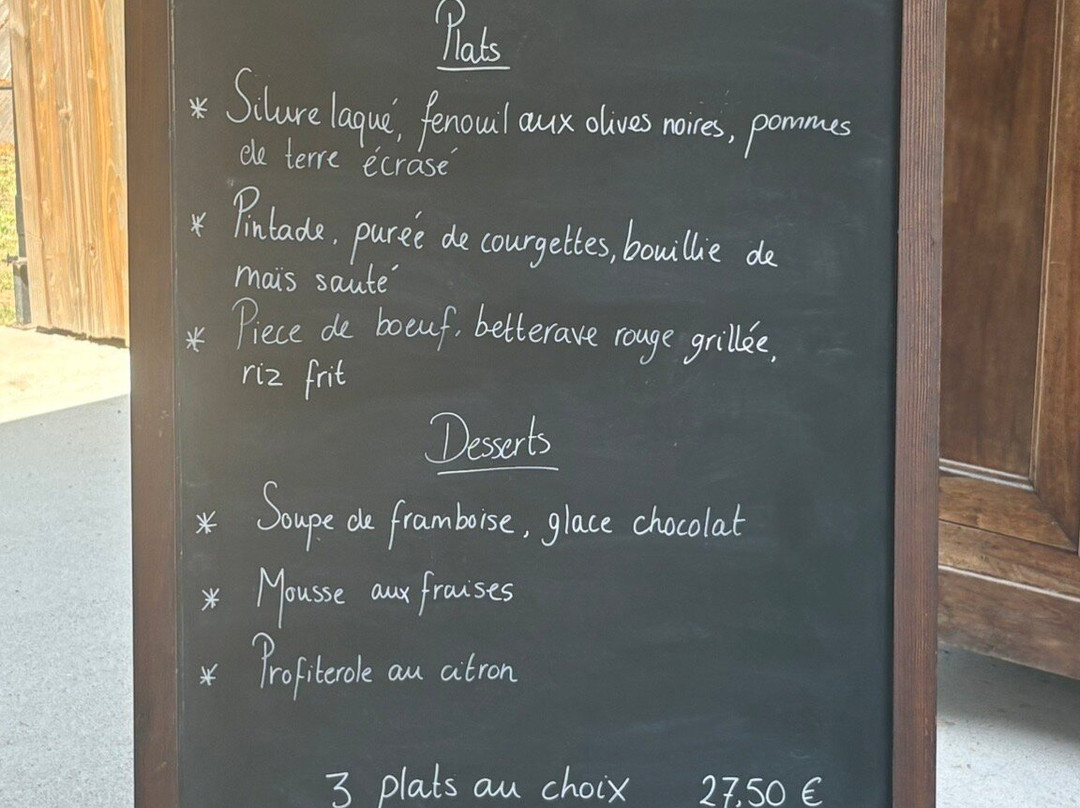 Plats
* Silure laqué, fenouil aux olives noires, pommes
de terre écrasé
* Pintade, purée de courgettes, bouillie de
maïs sauté
* Piece de boeuf, betterave rouge grillée,
riz frit
Desserts
* Soupe de framboise, glace chocolat
* Mousse aux fraises
* Profiterole au citron
3 plats au choix 27,50 €